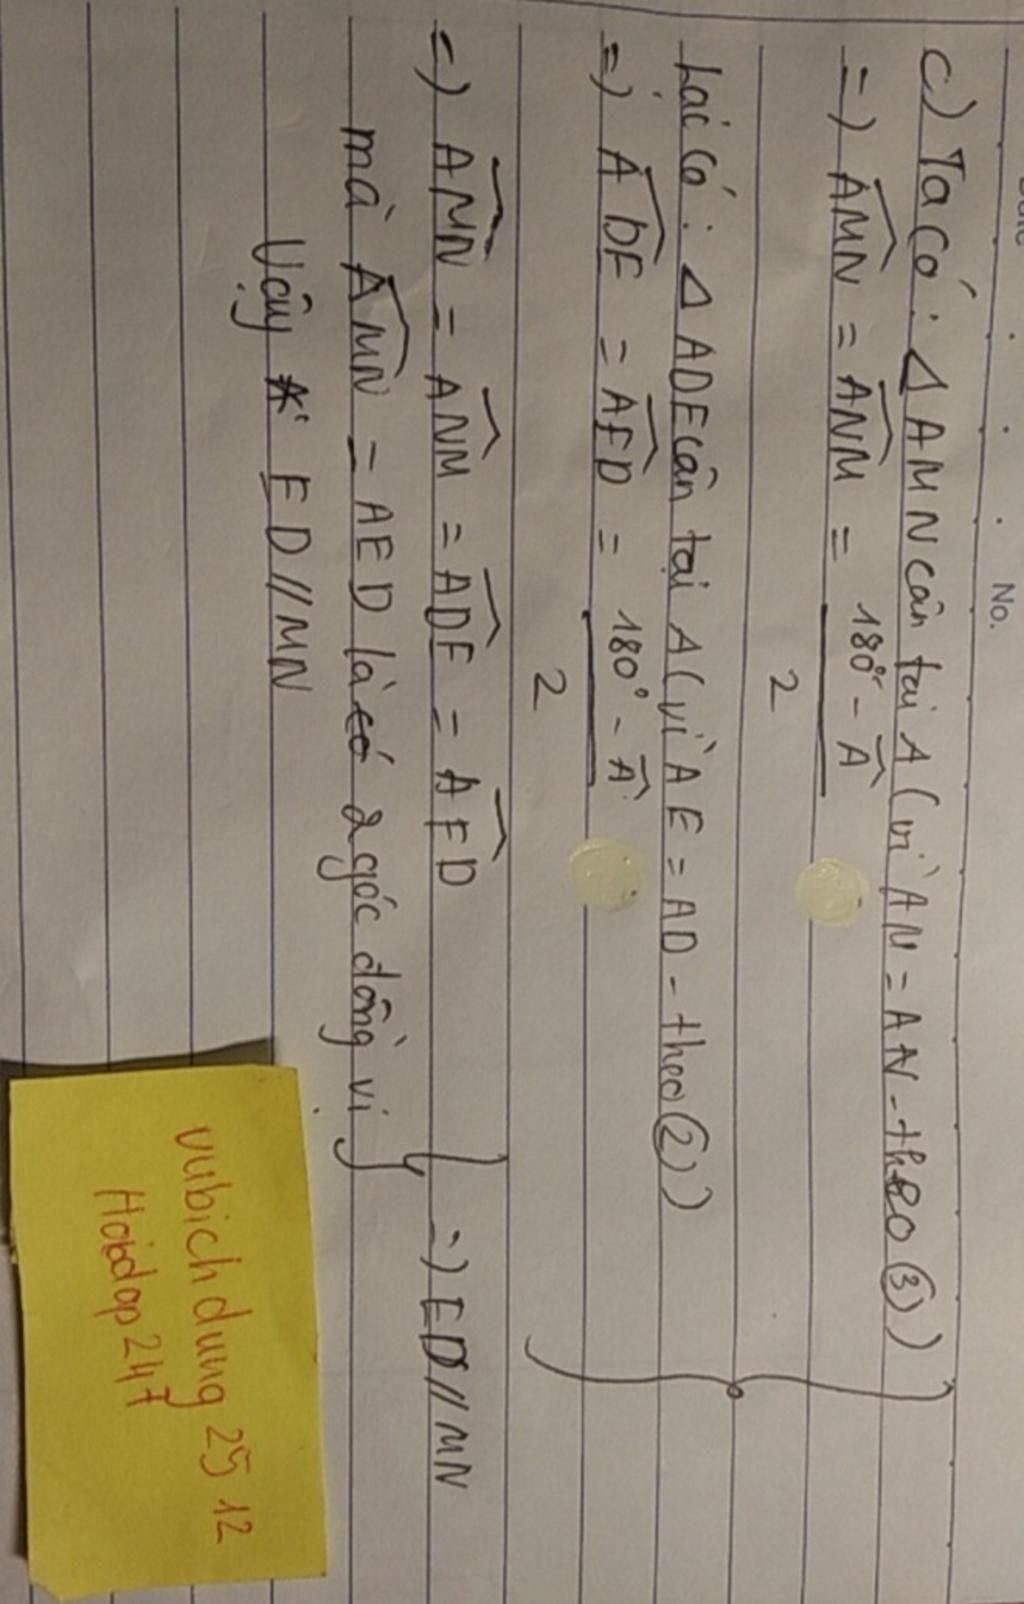 No.
c) Ta có: Δ AMN cân tại A (vì AN = AN - theo ③)
=) AMN = ANM = 180° - A
2
Lại có: Δ ADE cân tại A (vì AE = AD - theo ②)
=) ADE = AED = 180° - A
2
=) AMN = ANM = ADE = AED
=) ED // MN
mà AMN = AED là 2 góc đồng vị
Vậy ED // MN
vubichdung 25 12
Hoidap247